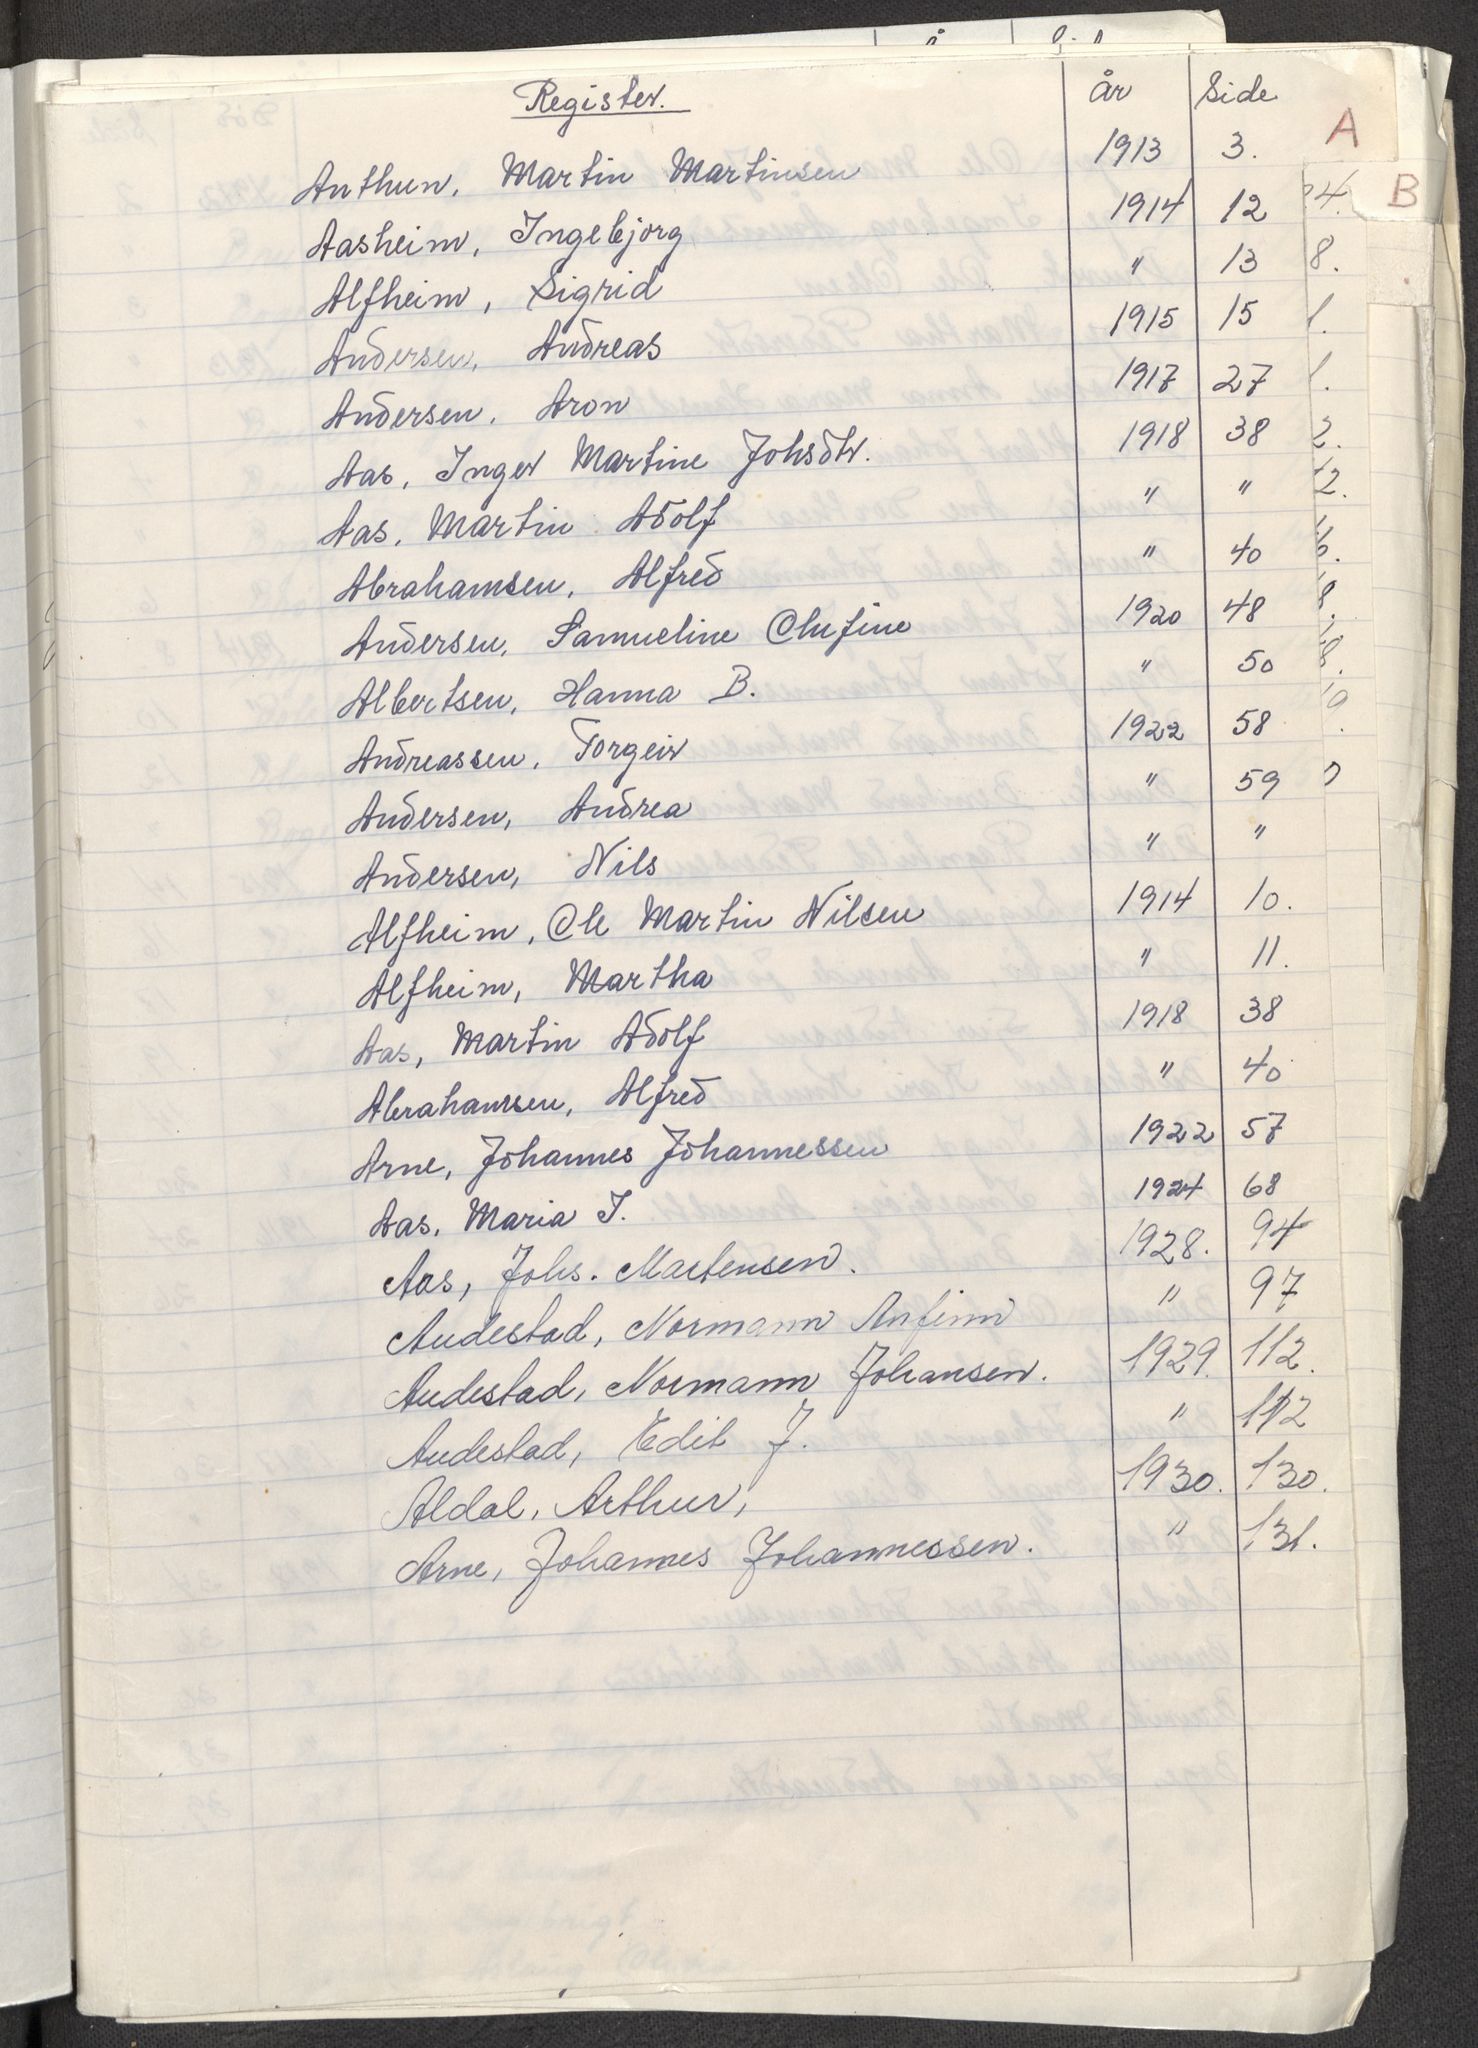 Register. år Side
A
Anthun, Martin Martinsen 1913 3.
B
Aasheim, Ingebjorg 1914 12
Alfheim, Sigrid " 13
Andersen, Andreas 1915 15
Andersen, Aron 1917 27
Aas, Inger Martine Johsdtr. 1918 38
Aas, Martin Adolf " "
Abrahamsen, Alfred " 40
Andersen, Samueline Olufine 1920 48
Albertsen, Hanna B. " 50
Andreassen, Torgeir 1922 58
Andersen, Andrea " 59
Andersen, Nils " "
Alfheim, Ole Martin Nilsen 1914 10.
Alfheim, Martha " 11.
Aas, Martin Adolf 1918 38
Abrahamsen, Alfred " 40
Arne, Johannes Johannessen 1922 57
Aas, Maria J. 1924 68
Aas, Johs. Martensen. 1928. 94
Audestad, Normann Anfinn " 97
Audestad, Normann Johansen. 1929. 112.
Audestad, Edit J. " 112
Aldal, Arthur, 1930. 130.
Arne, Johannes Johannessen. " 131.